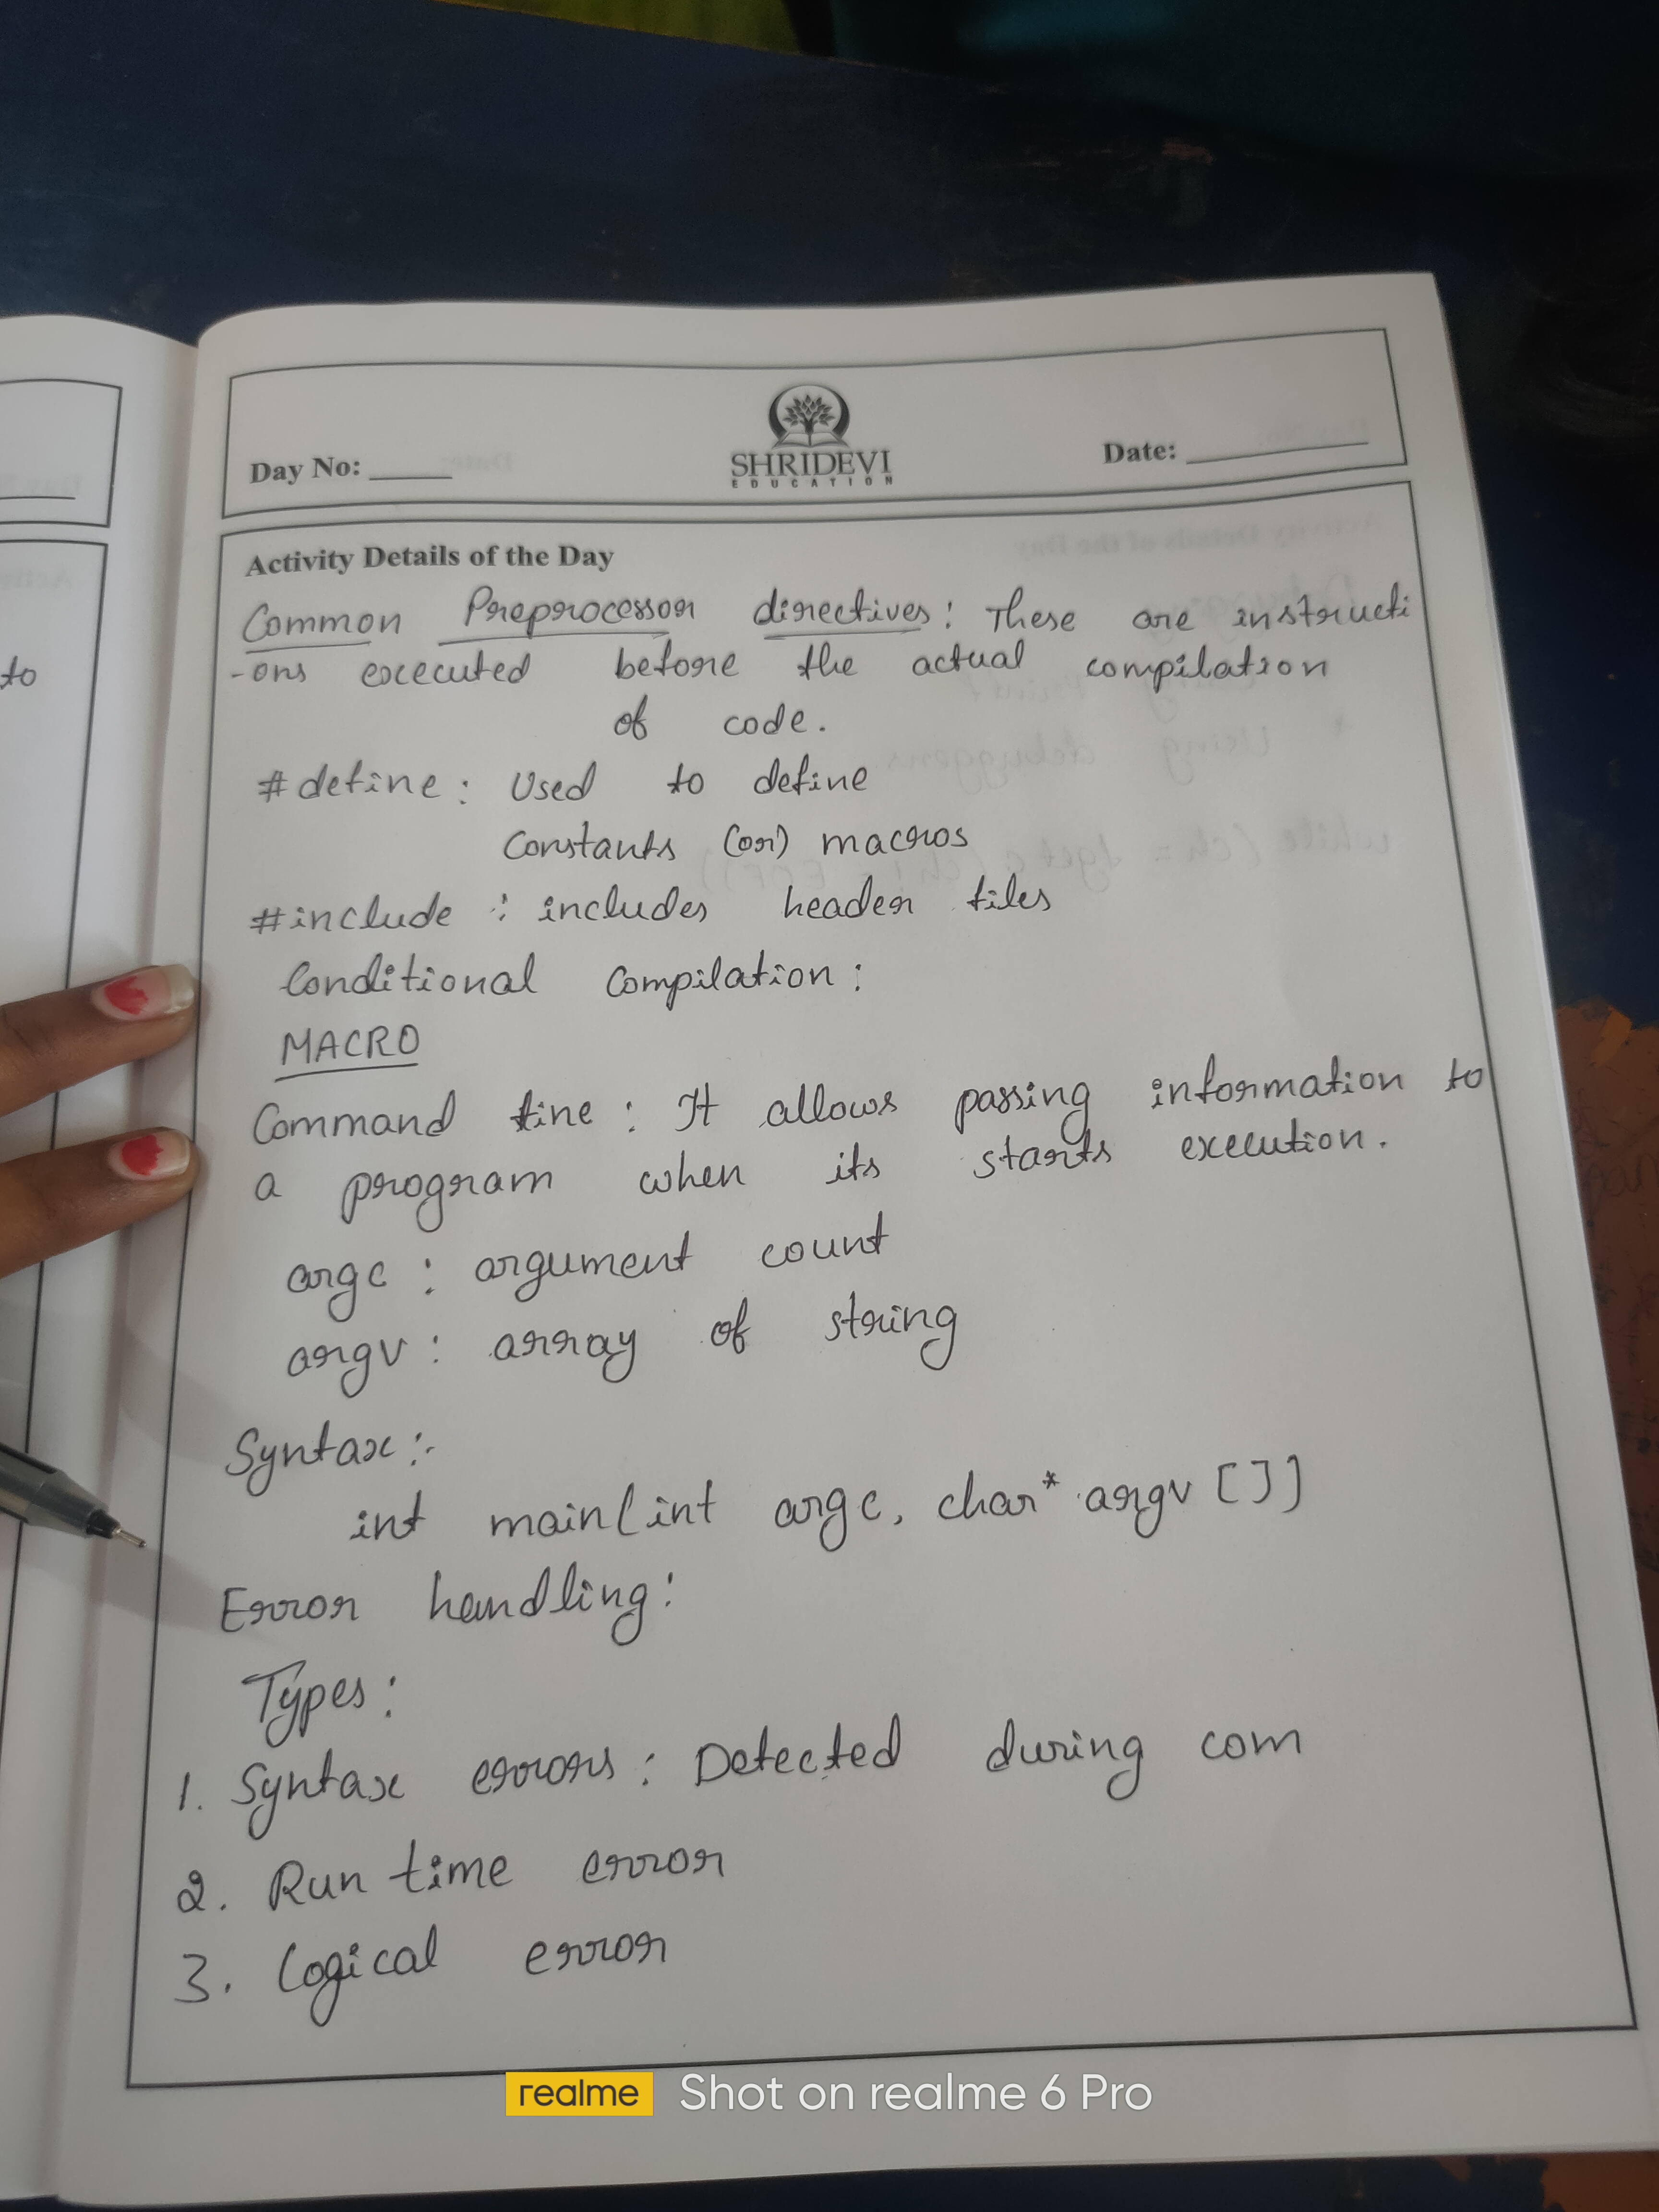 Day No:
SHRIDEVI
EDUCATION
Date:
Activity Details of the Day
Common Preprocessor directives: These are instructi
-ons executed before the actual compilation
of code.
#define: Used to define
Constants (or) macros
#include : includes header files
Conditional Compilation:
MACRO
Command line: It allows passing information to
a program when its starts execution.
argc: argument count
argv: array of string
Syntax:-
int main(int argc, char* argv[])
Error handling:
Types:
1. Syntax errors: Detected during com
2. Run time error
3. Logical error
to
realme Shot on realme 6 Pro